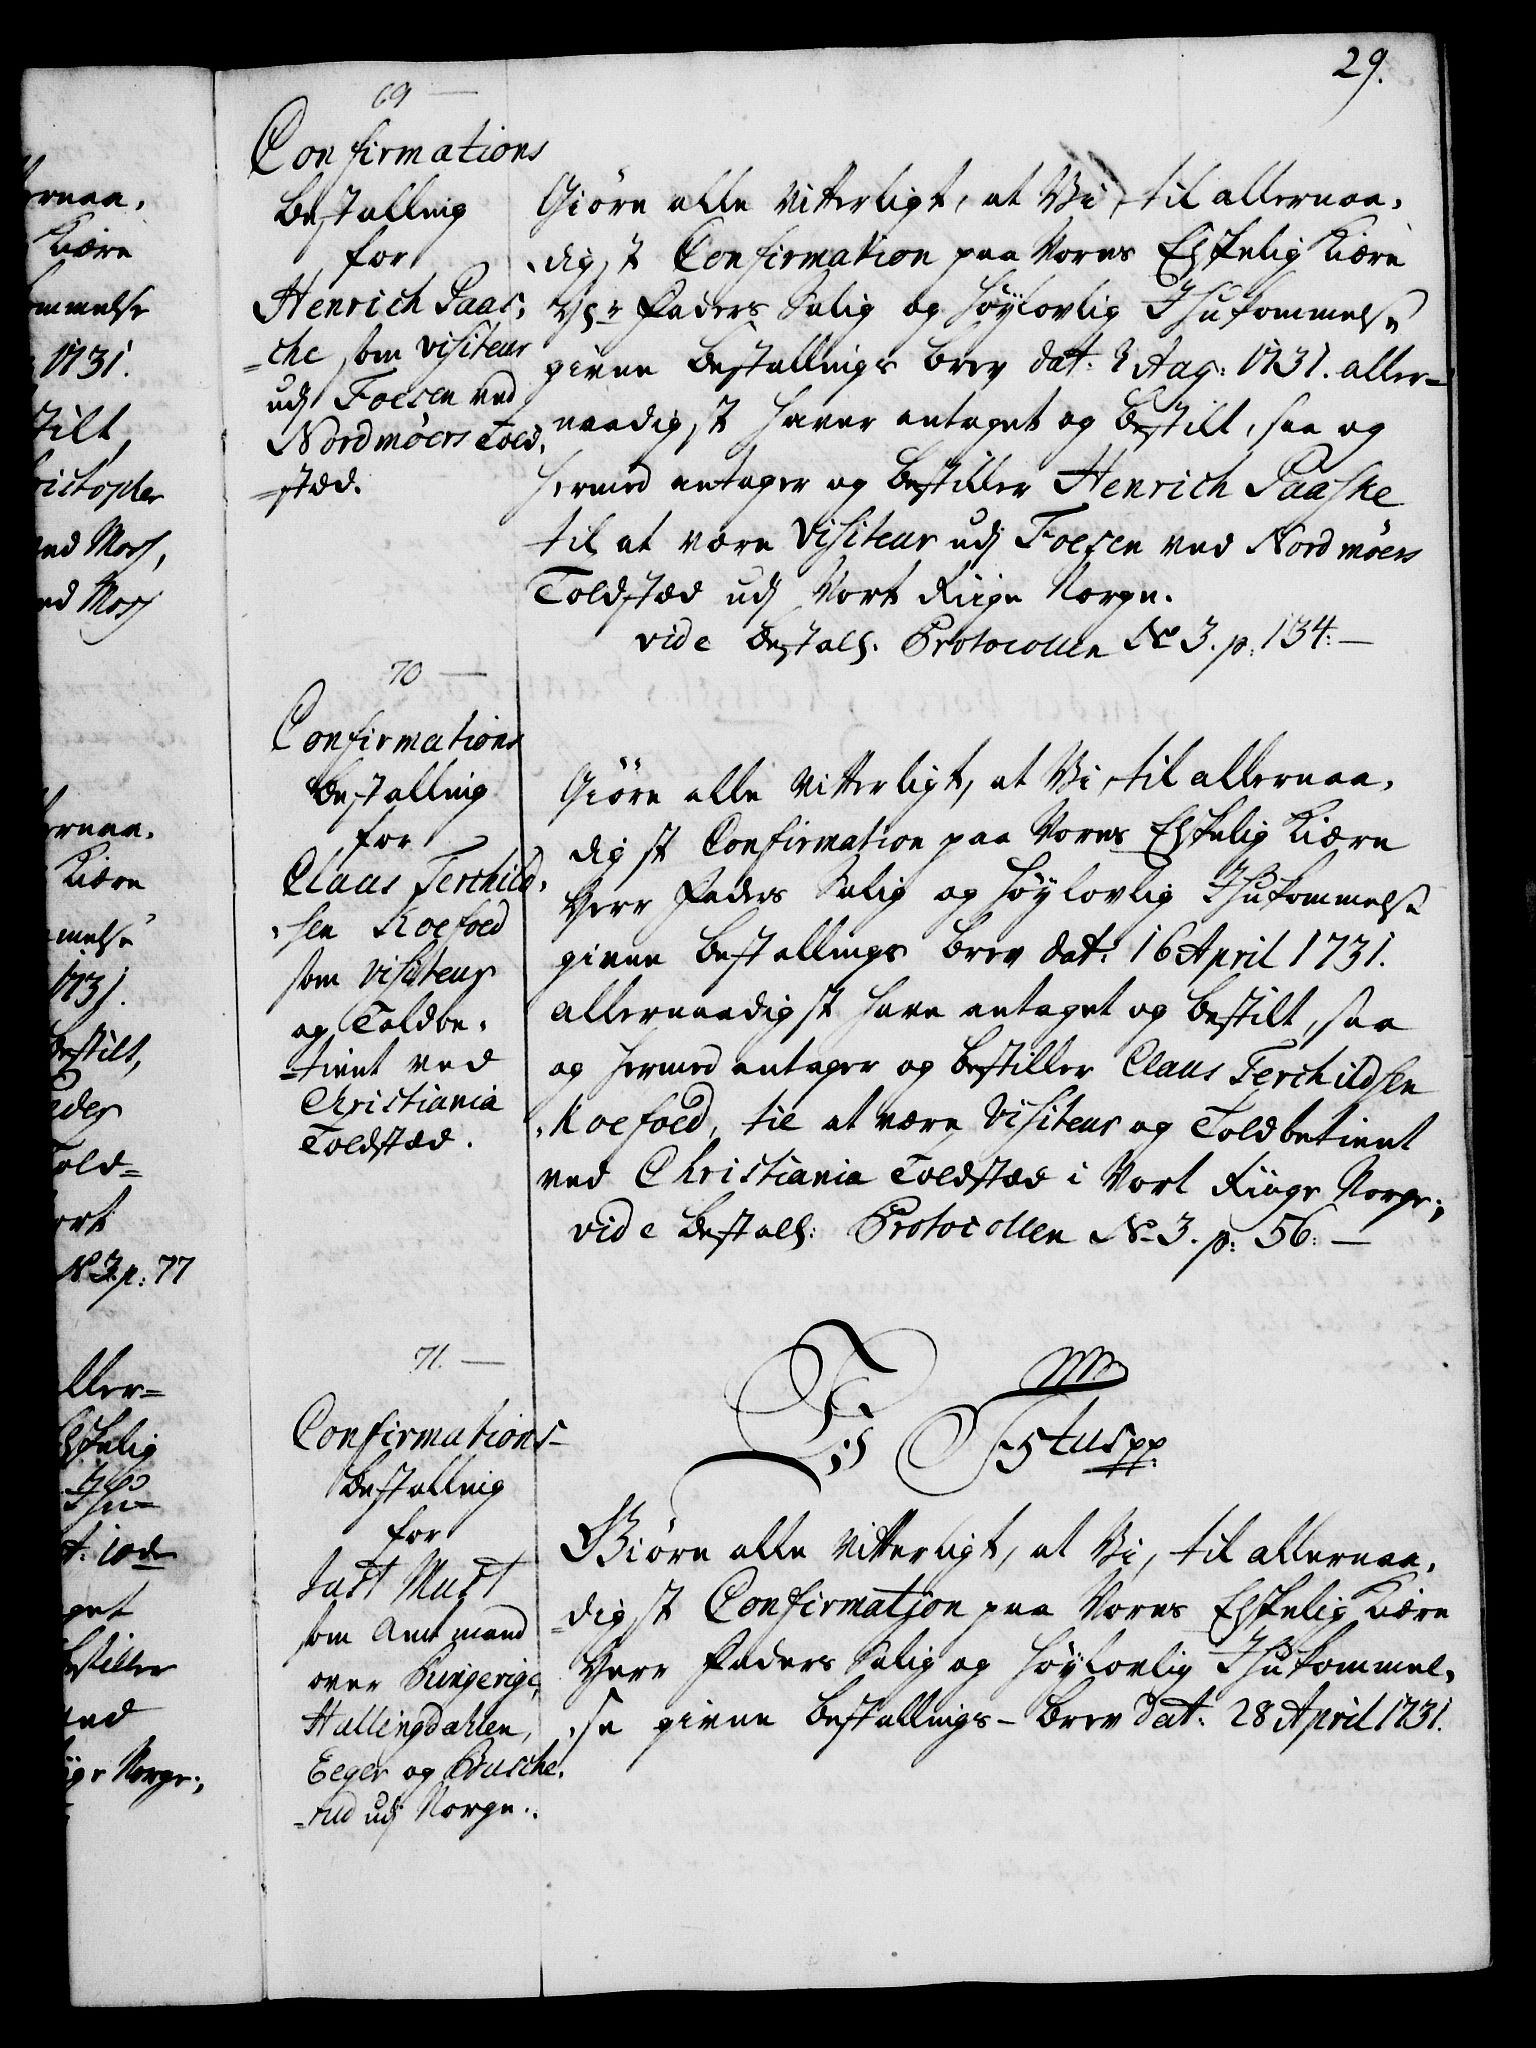 29.
69
Confirmations
Bestalling
for
Henrich Paas-
-che som visiteur
udj Foesen ved
Nordmøers Told-
-stæd.
Giøre alle Vitterligt, at Vi, til allernaa-
-digst Confirmation paa Vores Elskelig Kiære
Hr Faders Salig og Høylovlig Ihukommelse
givne Bestallings Brev dat: 3 Aug: 1731. aller-
naadigst haver antaget og Bestilt, saa og
hermed antager og Bestiller Henrich Paaske
til at være Visiteur udj Foesen ved Nordmøers
Toldstæd udj Vort Riige Norge.
vide Bestall. Protocollen No 3. p: 134:
70
Confirmations
Bestalling
for
Claus Terchild-
-sen Koefoed
som visiteur
og Toldbe-
-tient ved
Christiania
Toldstæd.
Giøre alle Vitterligt, at Vi, til allernaa-
digst Confirmation paa Vores Elskelig Kiære
Herr Faders Salig og Høylovlig Ihukommelse
givne Bestallings Brev dat: 16 April 1731.
allernaadigst have antaget og Bestilt, saa
og hermed antager og Bestiller Claus Terchildsen
Koefoed, til at være Visiteur og Toldbetient
ved Christiania Toldstæd i Vort Riige Norge;
vide Bestall: Protocollen No 3. p: 56:
71.
Confirmations-
Bestalling
for
Just Must
som Amtmand
over Ringerige,
Hallingdahlen,
Eeger og Busche-
-rud udj Norge.
Giøre alle Vitterligt, at Vi, til allernaa-
-digst Confirmation paa Vores Elskelig Kiære
Herr Faders Salig og Høylovlig Ihukommel-
-se givne Bestallings-Brev dat: 28 April 1731.